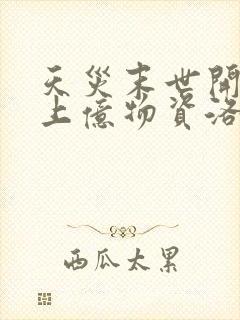 天災末世開
上億物資洛
西瓜太累